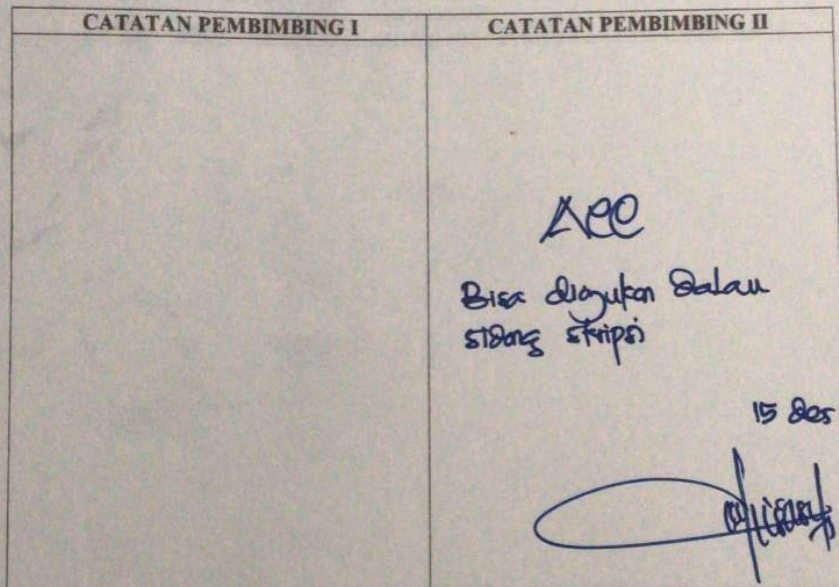 CATATAN PEMBIMBING I
CATATAN PEMBIMBING II
Acc
Bisa diajukan dalam
sidang skripsi
15 Des